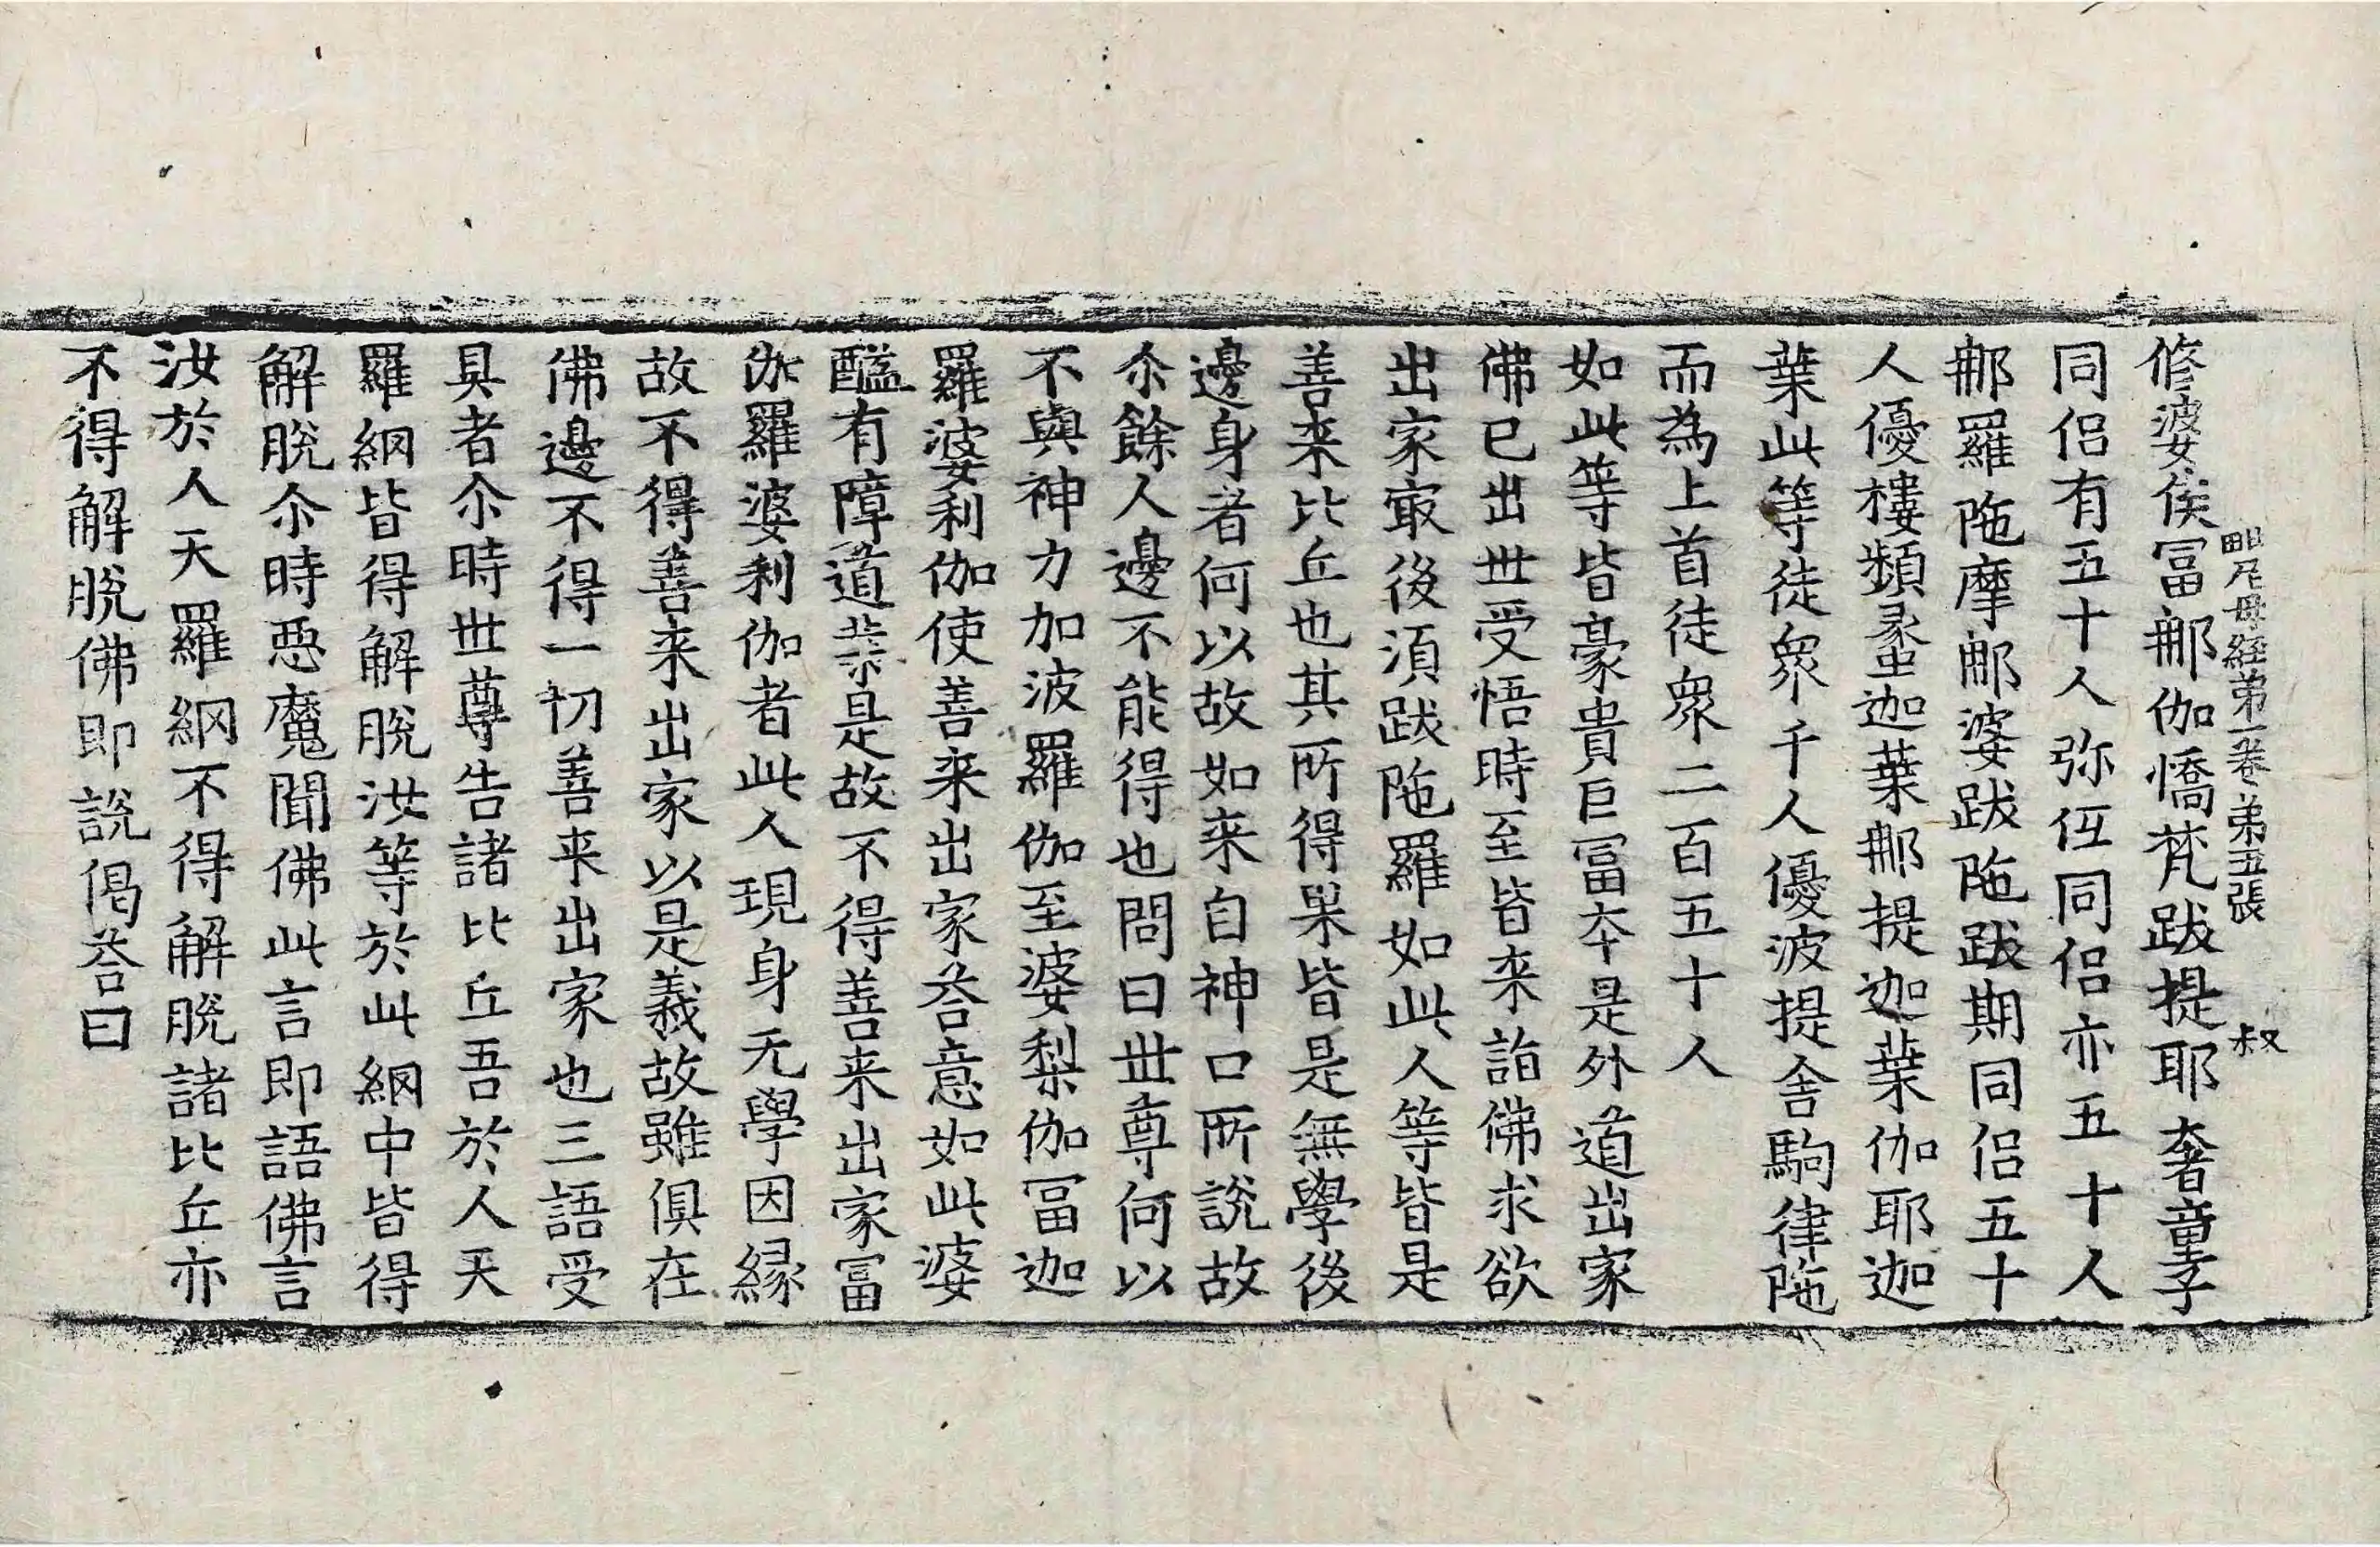 毗尼母経第一卷 第五張 叔
修婆侯冨㖠伽憍梵跋提耶奢童子
同侣有五十人弥伍同侣亦五十人
㖠羅陁摩㖠婆跋陁跋期同侣五十
人優樓頻螽迦葉㖠提迦葉伽耶迦
葉此等徒衆千人優波提舍駒律陁
而為上首徒衆二百五十人
如此等皆豪貴巨冨夲是外道出家
佛已出世受悟時至皆来詣佛求欲
出家㝡後湏跋陁羅如此人等皆是
善来比丘也其所得果皆是無學後
邊身者何以故如来自神口所說故
尒餘人邊不能得也問曰世尊何以
不與神力加波羅伽至婆梨伽冨迦
羅婆利伽使善来出家荅意如此婆
醯有障道業是故不得善来出家冨
伽羅婆利伽者此人現身无學因縁
故不得善来出家以是義故雖俱在
佛邊不得一切善来出家也三語受
具者尒時世尊告諸比丘吾於人天
羅網皆得解脫汝等於此網中皆得
解脫尒時惡魔聞佛此言即語佛言
汝於人天羅網不得解脫諸比丘亦
不得解脫佛即說偈荅曰